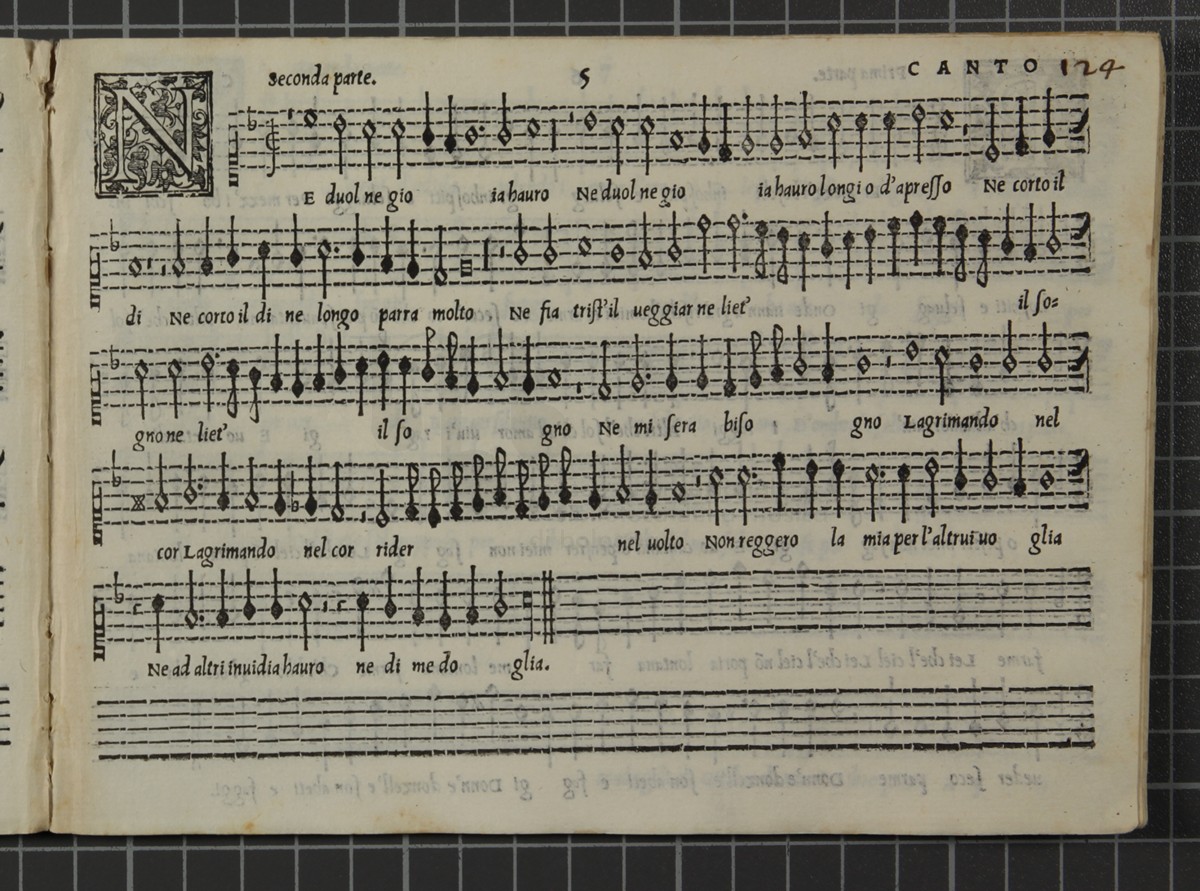 Seconda parte. 5 CANTO 124
NE duol ne gio ia hauro Ne duol ne gio ia hauro longi o d'apresso Ne corto il
di Ne corto il di ne longo parra molto Ne fia trist'il ueggiar ne liet' il so=
gno ne liet' il so gno Ne mi sera biso gno Lagrimando nel
cor Lagrimando nel cor rider nel uolto Non reggero la mia per l'altrui uo glia
Ne ad altri inuidia hauro ne di me do glia.